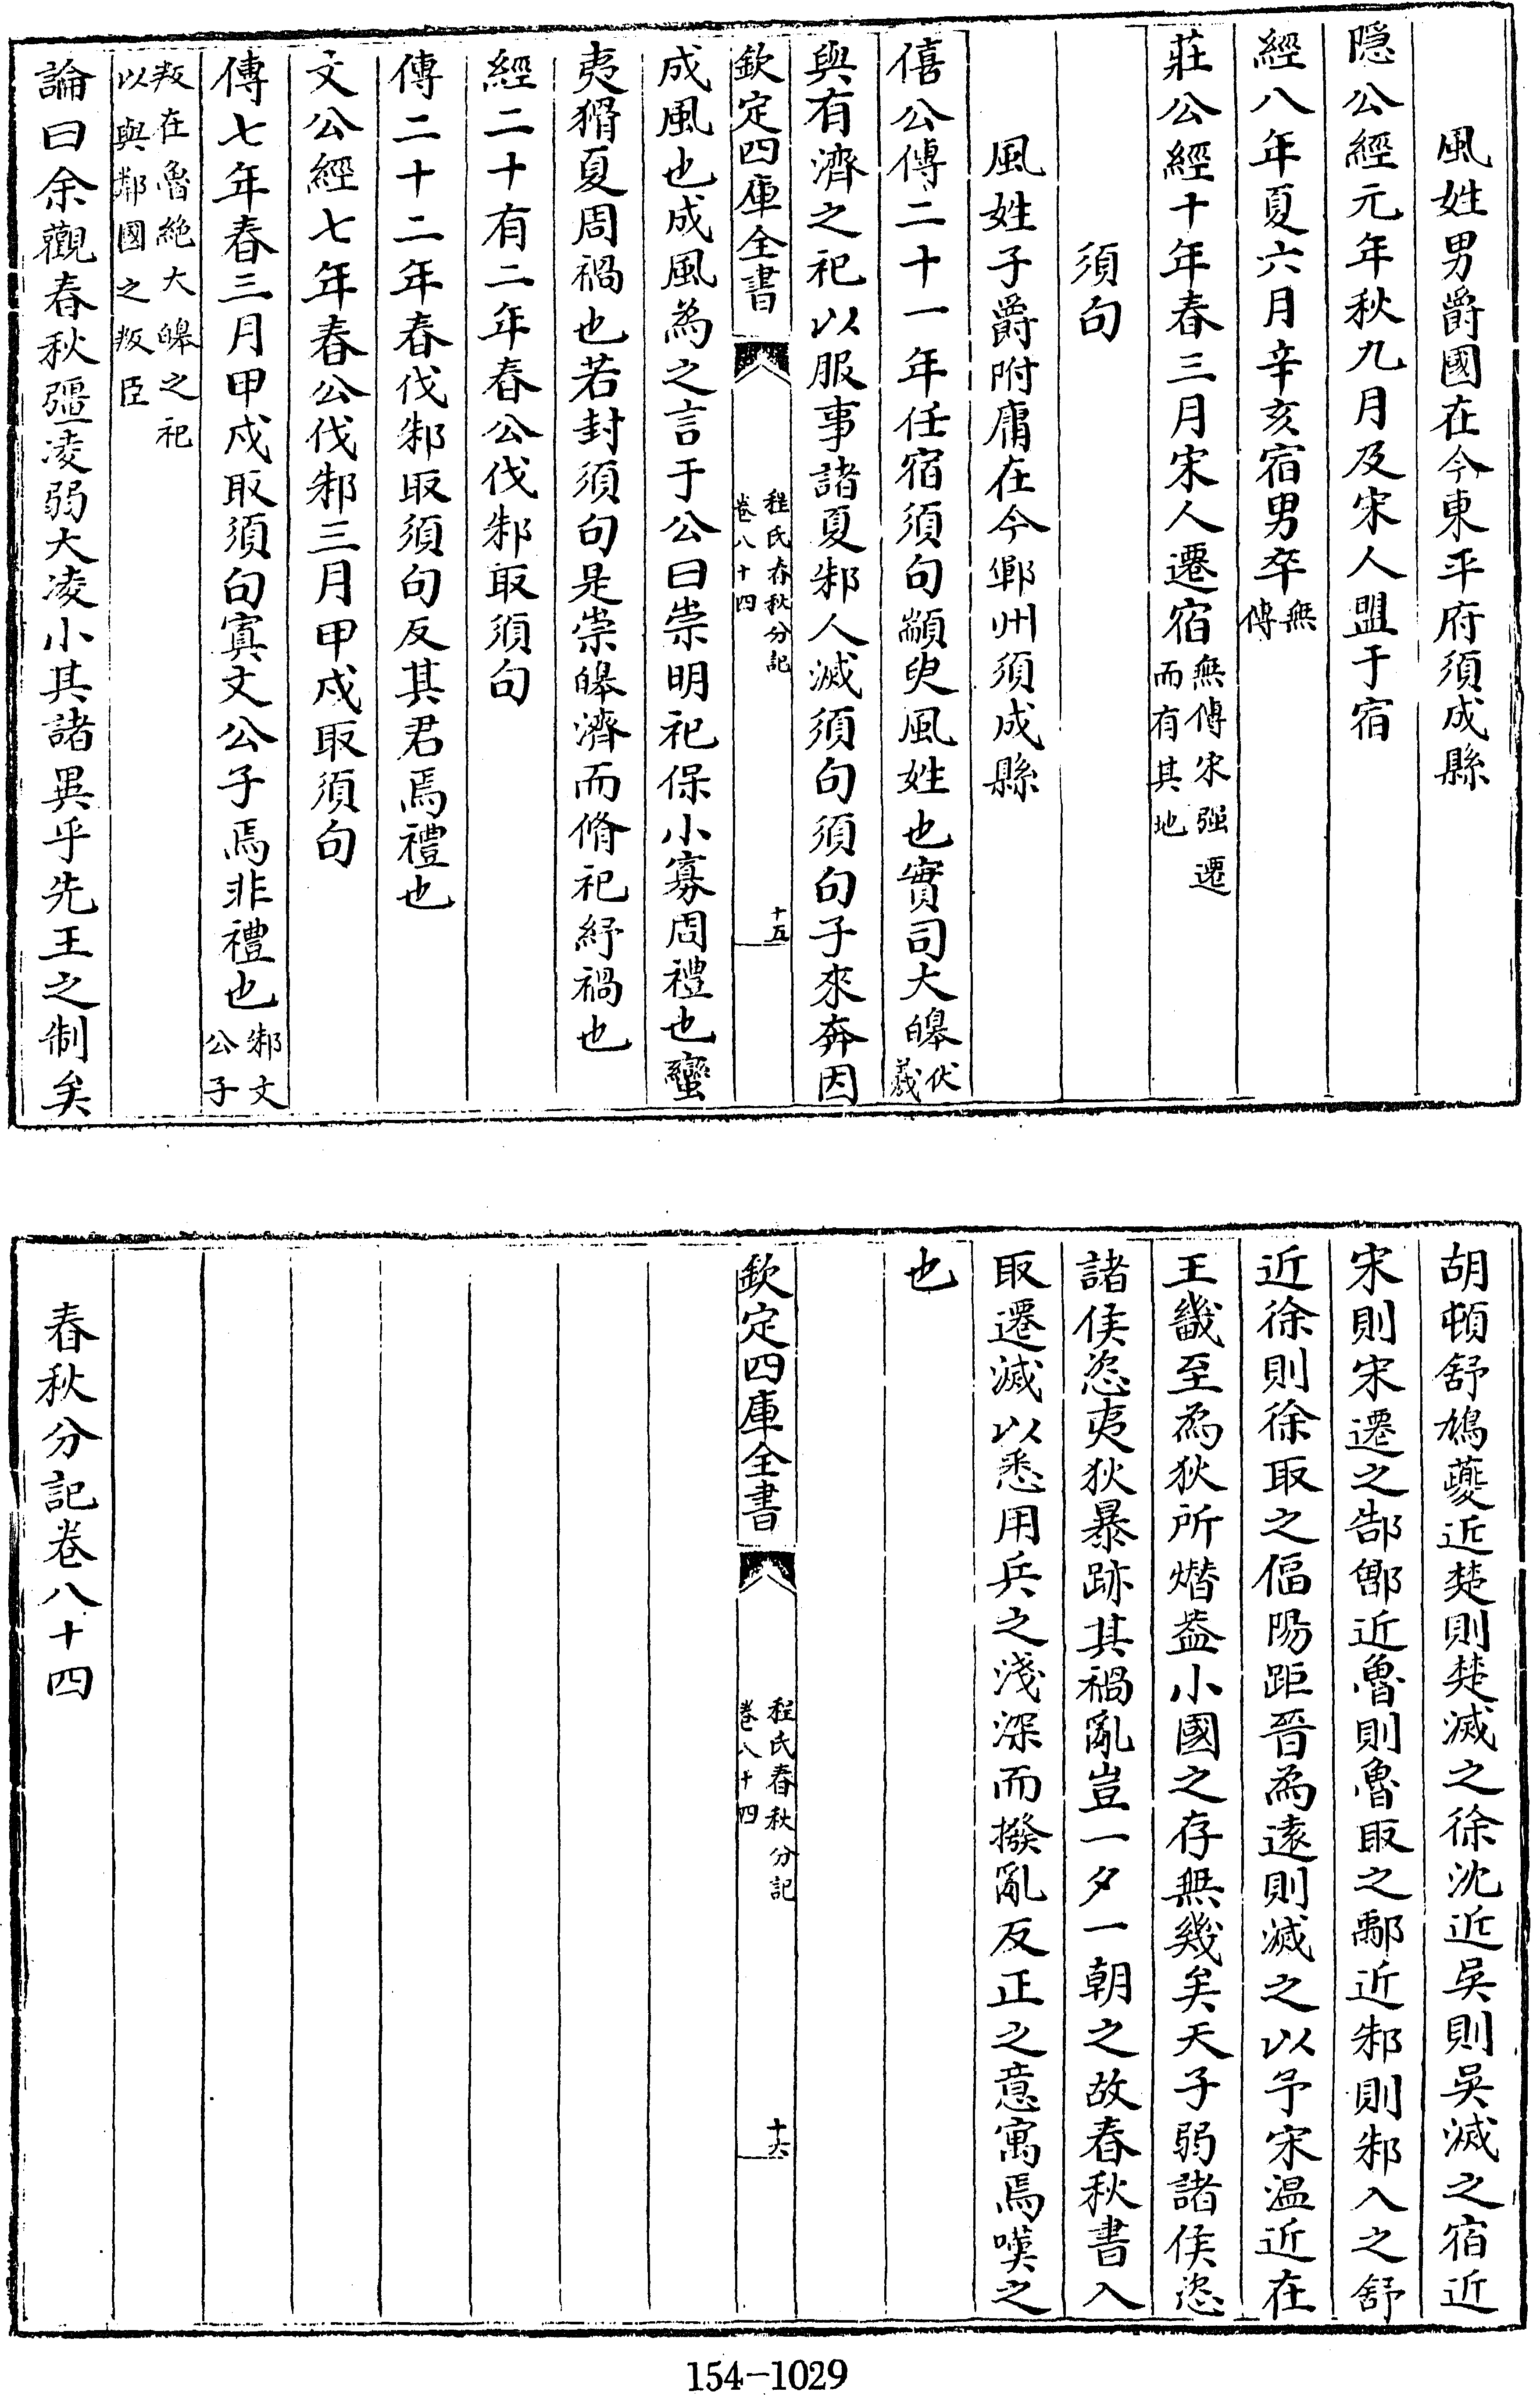 風姓男爵國在今東平府須成縣
隱公經元年秋九月及宋人盟于宿
經八年夏六月辛亥宿男卒無傳
莊公經十年春三月宋人遷宿無傳宋强遷而有其地
須句
風姓子爵附庸在今鄆州須成縣
僖公傳二十一年任宿須句顓臾風姓也實司大皞伏羲
與有濟之祀以服事諸夏邾人滅須句須句子來奔因
欽定四庫全書 程氏春秋分記卷八十四 十五
成風也成風為之言于公曰崇明祀保小寡周禮也蠻
夷猾夏周禍也若封須句是崇皞濟而脩祀紓禍也
經二十有二年春公伐邾取須句
傳二十二年春伐邾取須句反其君焉禮也
文公經七年春公伐邾三月甲戌取須句
傳七年春三月甲戌取須句寘文公子焉非禮也邾文公子
叛在魯絶大皞之祀以與鄰國之叛臣
論曰余觀春秋彊凌弱大凌小其諸異乎先王之制矣
胡頓舒鳩夔近楚則楚滅之徐沈近吳則吳滅之宿近
宋則宋遷之郜鄫近魯則魯取之鄅近邾則邾入之舒
近徐則徐取之偪陽距晉為遠則滅之以予宋温近在
王畿至為狄所熸葢小國之存無幾矣天子弱諸侯恣
諸侯恣夷狄暴跡其禍亂豈一夕一朝之故春秋書入
取遷滅以悉用兵之淺深而撥亂反正之意寓焉嘆之
也
欽定四庫全書 程氏春秋分記卷八十四 十六
春秋分記卷八十四
154-1029